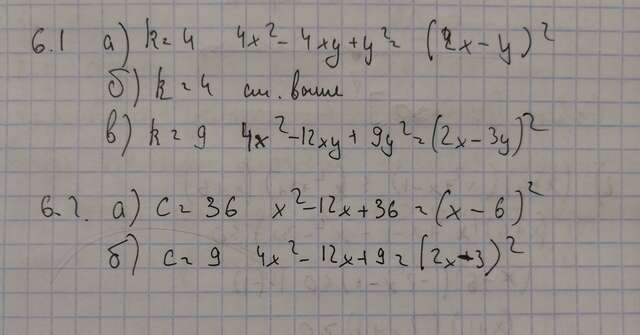 6.1 а) k = 4 4x² - 4xy + y² = (2x - y)²
б) k = 4 см. выше
в) k = 9 4x² - 12xy + 9y² = (2x - 3y)²
6.2. а) c = 36 x² - 12x + 36 = (x - 6)²
б) c = 9 4x² - 12x + 9 = (2x - 3)²